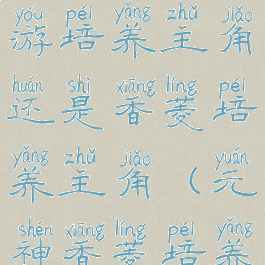 yóu péi yǎng zhǔ jiǎo
游培养主角
huán shì xiāng líng péi
还是香菱培
yǎng zhǔ jiǎo yuán
养主角（元
shén xiāng líng péi yǎng
神香菱培养